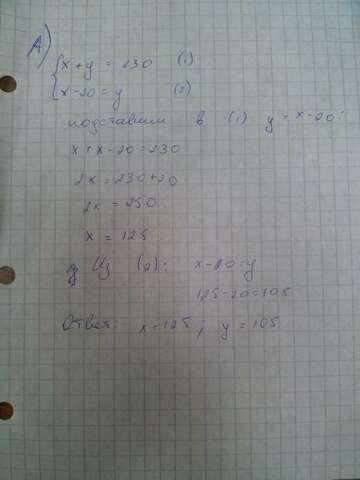 А)
{ x+y = 230 (1)
x-20=y (2)
подставим в (1) y = x-20:
x+x-20=230
2x=230+20
2x = 250
x = 125
Из (2): x-20=y
125-20=105
Ответ: x=125, y=105